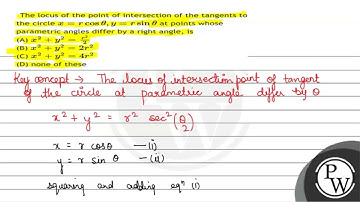 The locus of the point of intersection of the tangents to
the circle x = r cos θ, y = r sin θ at points whose
parametric angles differ by a right angle, is
(A) x² + y² = r²/2
(B) x² + y² = 2r²
(C) x² + y² = 4r²
(D) none of these
Key concept → The locus of intersection point of tangent
of the circle at parametric angle differ by θ
x² + y² = r² sec² (θ/2)
x = r cosθ —(i)
y = r sin θ —(ii)
squaring and adding eqⁿ (i)
P
W